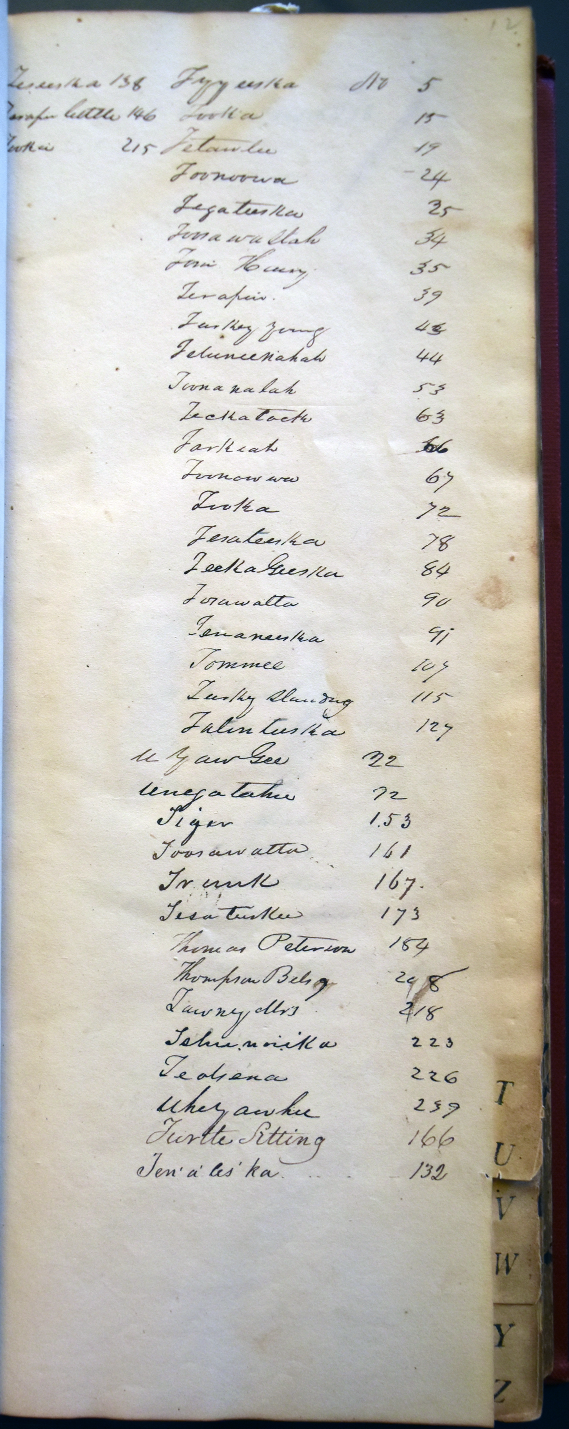 12
138 Tyyeeska No 5
little 146 Tooka 15
Tooka 215 Tetawlee 19
Toonoowa 24
Tegateeska 25
34
Tom Henry 35
Terapin. 39
Turkey young
Teluneekahah 44
Toonanalah 53
Teckatock 63
Tarkeah 66
Toonowwa 67
Tooka 72
Tesateeska 78
TeekaGeeska 84
Tosawatta 90
Tenaneeska 91
Tommee 107
115
Talonteeska 127
U Yaw Gee 22
Unegatahee 72
Tiger 153
Toosawatta 161
Trunk 167.
Tesatuskee 173
Thomas Peterson 184
Thompson Betsy
Tawney Mrs 218
223
226
Uheyawhee 239
Turtle Setting 166
132
T
U
V
W
Y
Z